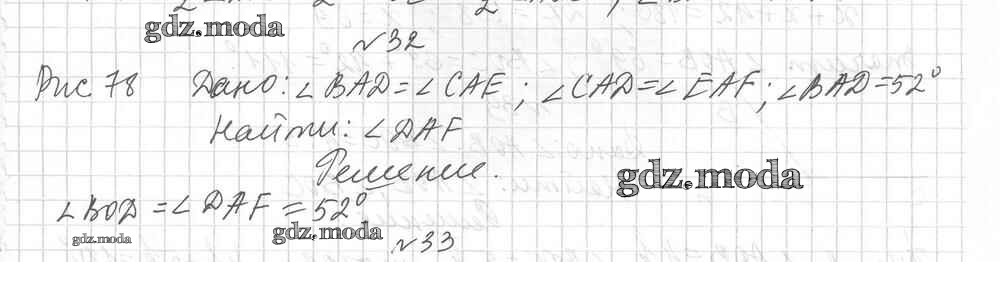 gdz.moda
№32
Рис 78 Дано: ∠BAD = ∠CAE; ∠CAD = ∠EAF; ∠BAD = 52°
Найти: ∠DAF
Решение.
gdz.moda
∠BOD = ∠DAF = 52°
gdz.moda
gdz.moda
№33